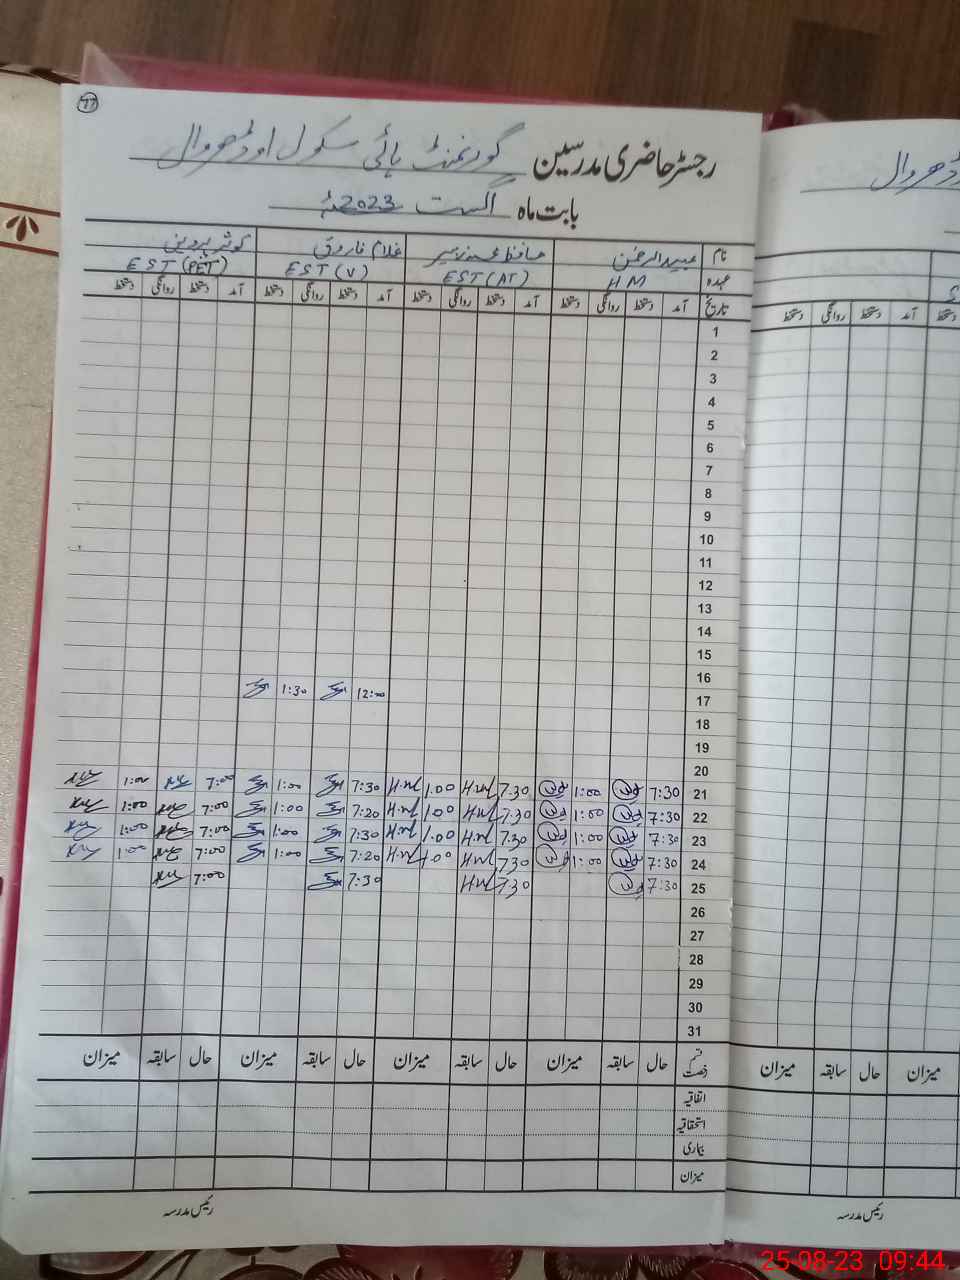 77
رجسٹر حاضری مدرسین گورنمنٹ ہائی سکول اوڈھروال
بابت ماہ اگست 2023ء
نام عبیدالرحمٰن حافظ غلام فاروق کوثر پروین
عہدہ HM EST (AT) EST (V) EST (PET)
تاریخ آمد دستخط روانگی دستخط آمد دستخط روانگی دستخط آمد دستخط روانگی دستخط آمد دستخط روانگی دستخط
1
2
3
4
5
6
7
8
9
10
11
12
13
14
15
16
17 12:00 1:30
18
19
20
21 7:30 1:00 7:30 1:00 7:30 1:00 7:00 1:00
22 7:30 1:00 7:30 1:00 7:20 1:00 7:00 1:00
23 7:30 1:00 7:30 1:00 7:30 1:00 7:00 1:00
24 7:30 1:00 7:30 1:00 7:20 1:00 7:00 1:00
25 7:30 7:30 7:30 7:00
26
27
28
29
30
31
قسم رخصت حال سابقہ میزان حال سابقہ میزان حال سابقہ میزان حال سابقہ میزان
اتفاقیہ
استحقاقیہ
بیماری
میزان
رئیس مدرسہ
دستخط آمد دستخط روانگی دستخط
میزان حال سابقہ میزان
رئیس مدرسہ
25-08-23 09:44